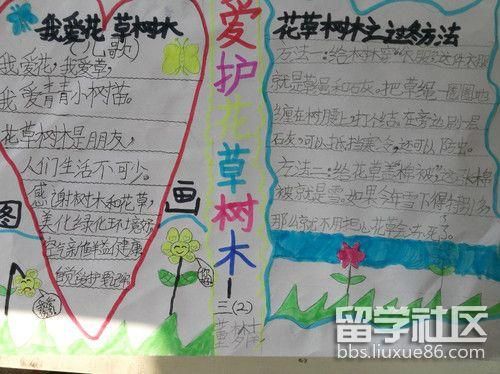 我爱花草树木
(儿歌)
我爱花,我爱草,
我爱青青小树苗。
花草树木是朋友,
人们生活不可少。
感谢树木和花草,
美化绿化环境好。
空气新鲜益健康
图
画
爱护花草树木
三(2)
花草树木之过冬方法
方法一:给树木穿“衣服”这件衣服
就是草绳和石灰。把草绳一圈圈地
缠在树腰上,打个结,在旁边刷一层
石灰,可以抵挡寒冷,还可以防虫。
方法二:给花草盖“棉被”这张棉
被就是雪。如果今年雪下得特别多,
那么就不用担心花草会冻死了。
留学社区
bbs.liuxue86.com